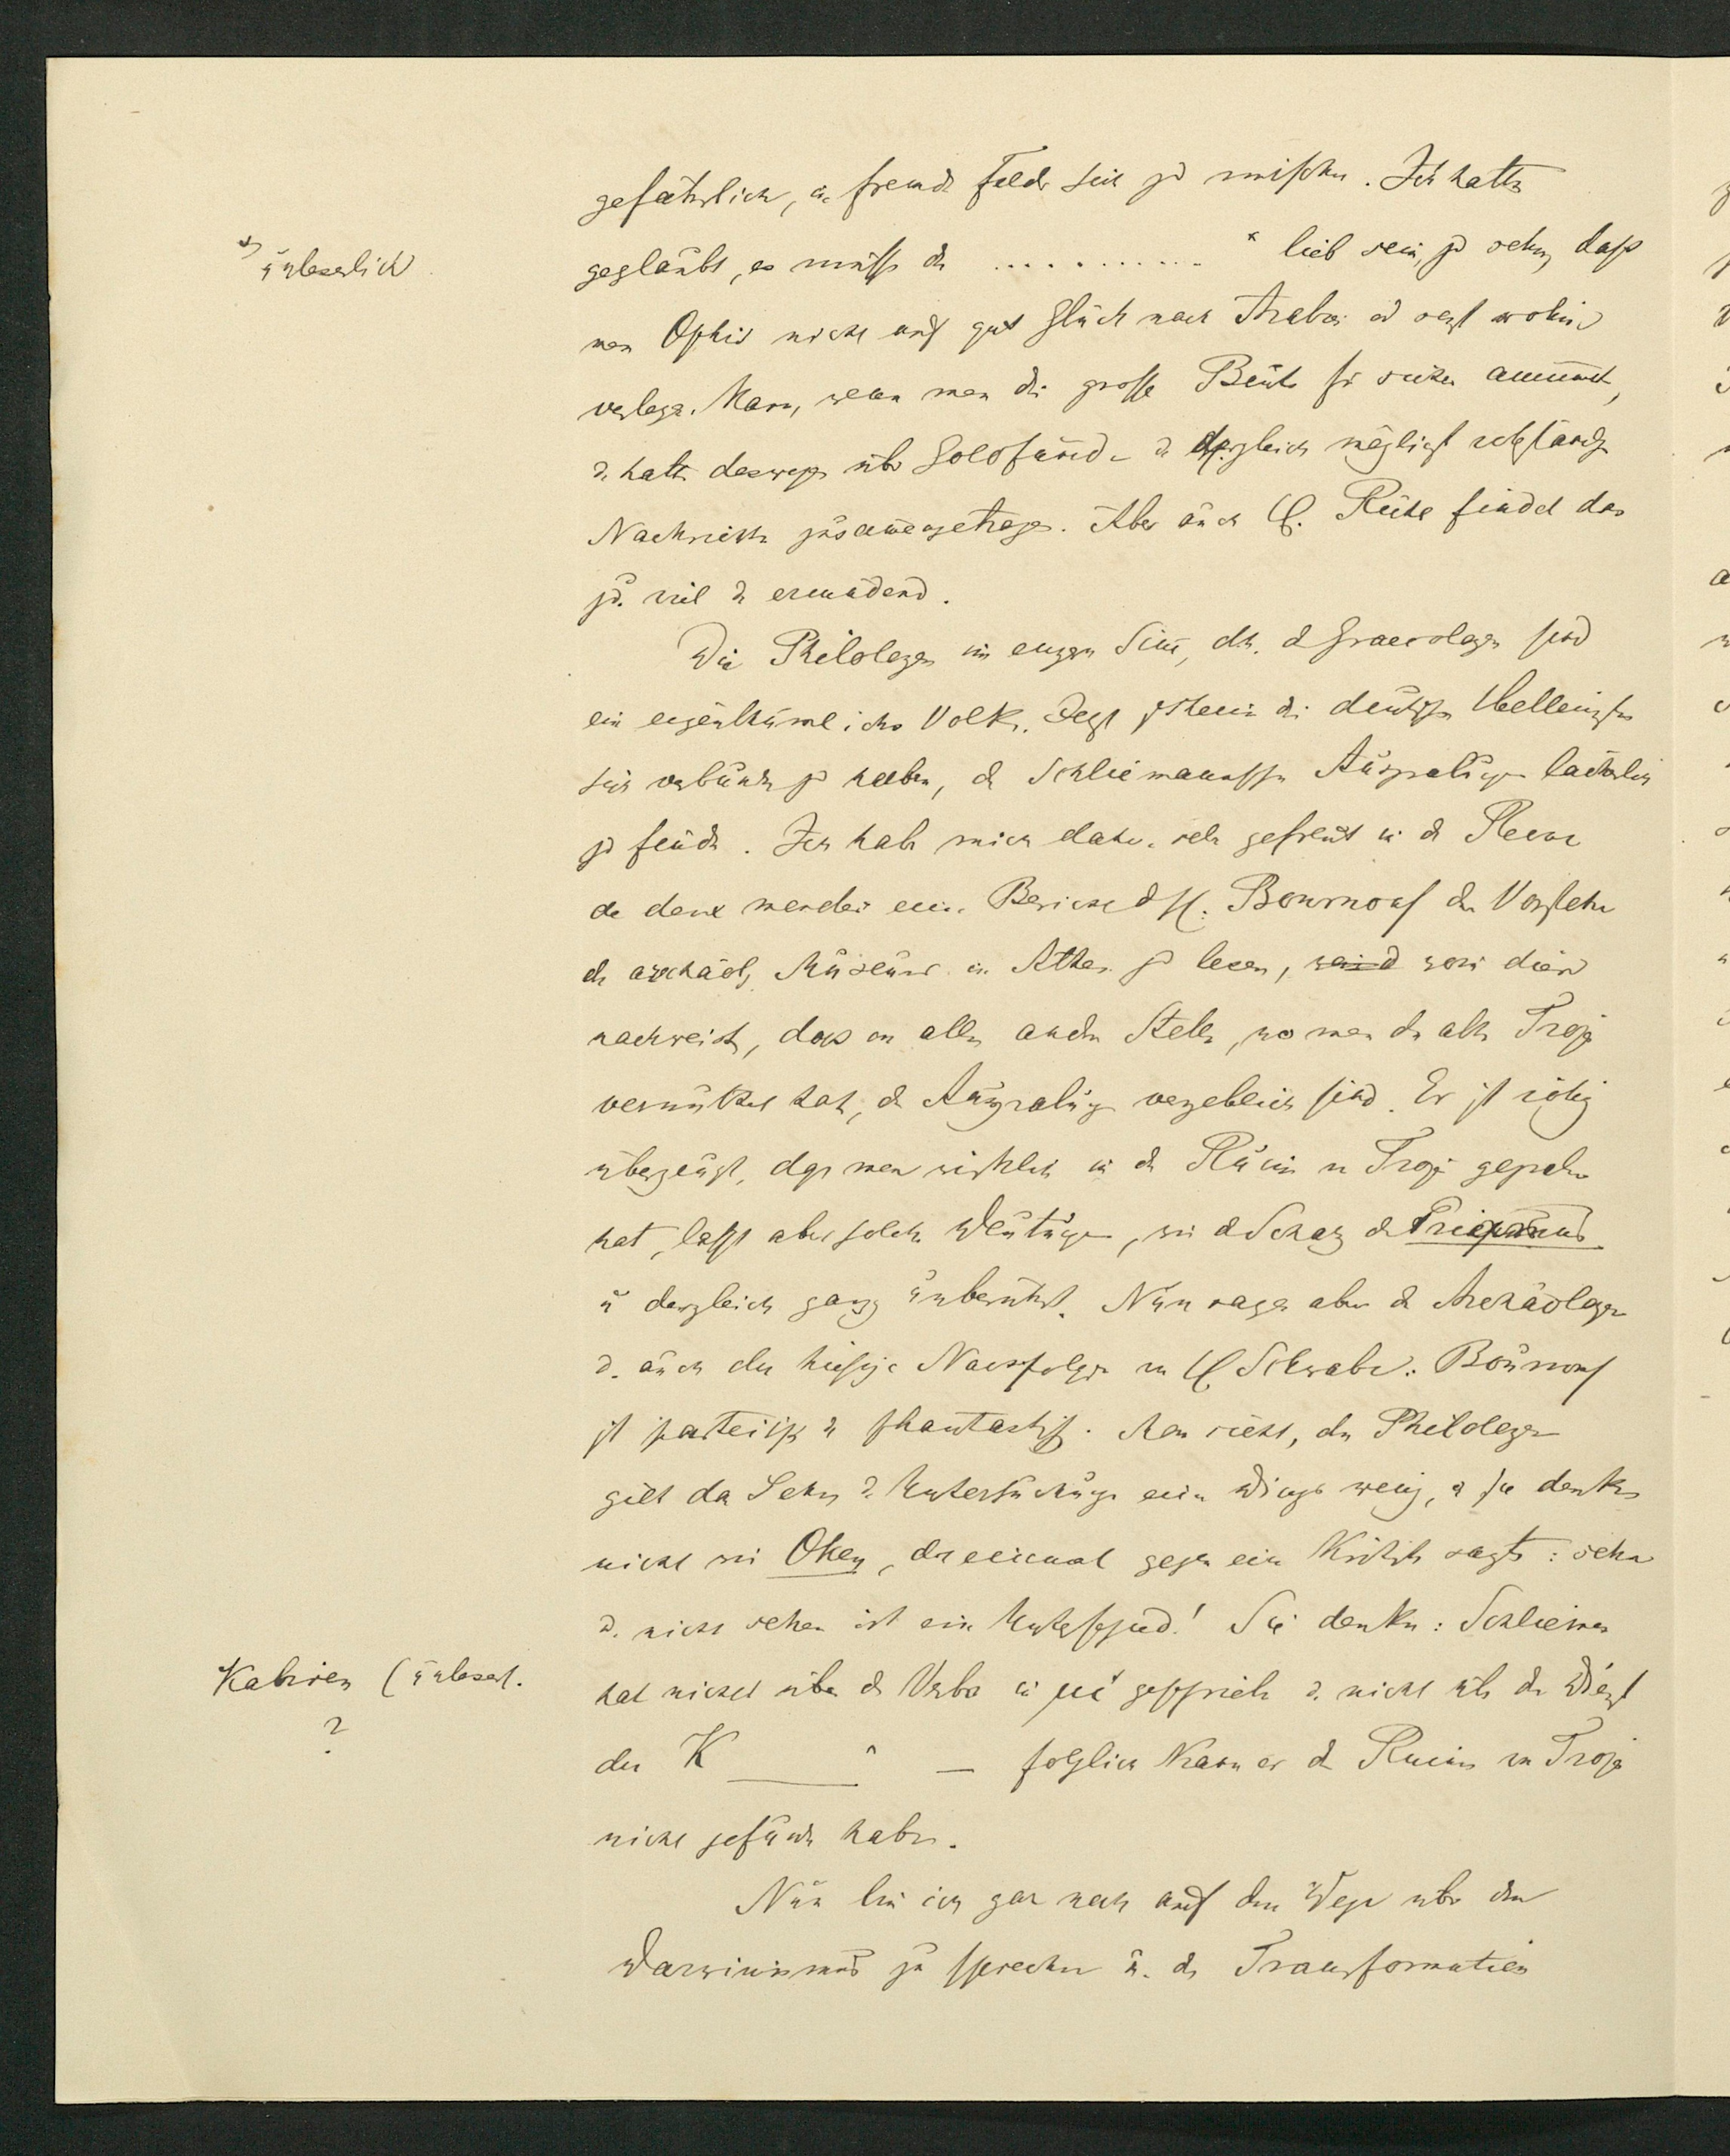 gefährlich, in fremde Felder sich zu mischen. Ich hatte
*) unleserlich
geglaubt, es müsse den ............ * lieb sein, zu sehen, dass
man Ophir nicht auf gut Glück nach Arabien od sonst wohin
verlege. Mann, wenn man die grosse Beute für sicher annimmt,
u. hatte deswegen über Goldfunde u dergleich möglichst vollständige
Nachrichten zusammengetragen. Aber auch H. Reuss findet das
zu viel u ermüdend.
Die Philologen im engern Sinn, dh. d Graecologen sind
ein eigenthümliches Volk. Jetzt scheinen die deutschen Hellenisten
sich verbündet zu haben, die Schliemannschen Ausgrabungen lächerlich
zu finden. Ich habe mich daher sehr gefreut in der Revue
de deux mondes einen Bericht d H. Bournouf den Vorsteher
des archäol. Museums in Athen zu lesen, worin dieser
nachweist, dass an allen andern Stellen, wo man das alte Troja
vermuthet hat, die Ausgrabungen vergeblich sind. Er ist völlig
überzeugt, dass man wirklich in den Ruinen v Troja gegraben
hat, lasst aber solche Deutungen, wie d Schatz des Priamus
u dergleich ganz unberührt. Nun sagen aber die Archäologen
u. auch der hiesige Nachfolger von H Schwabe: Bournouf
ist parteiisch u phantastisch. Man sieht, den Philologen
gilt das Sehen u Untersuchung einer Dinge wenig, u sie denken
nicht wie Oken, der einmal gegen ein Kritiker sagte: sehen
u. nicht sehen ist ein Unterschied! Sie denken: Schliemann
Kabiren (unlesert.
?
hat nichts über die Verba in μι geschrieben u. nicht über den Dienst
der K____ ^ — folglich kann er die Ruinen von Troja
nicht gefunden haben.
Nun bin ich gar noch auf dem Wege über den
Darwinismus zu sprechen u. die Transformation